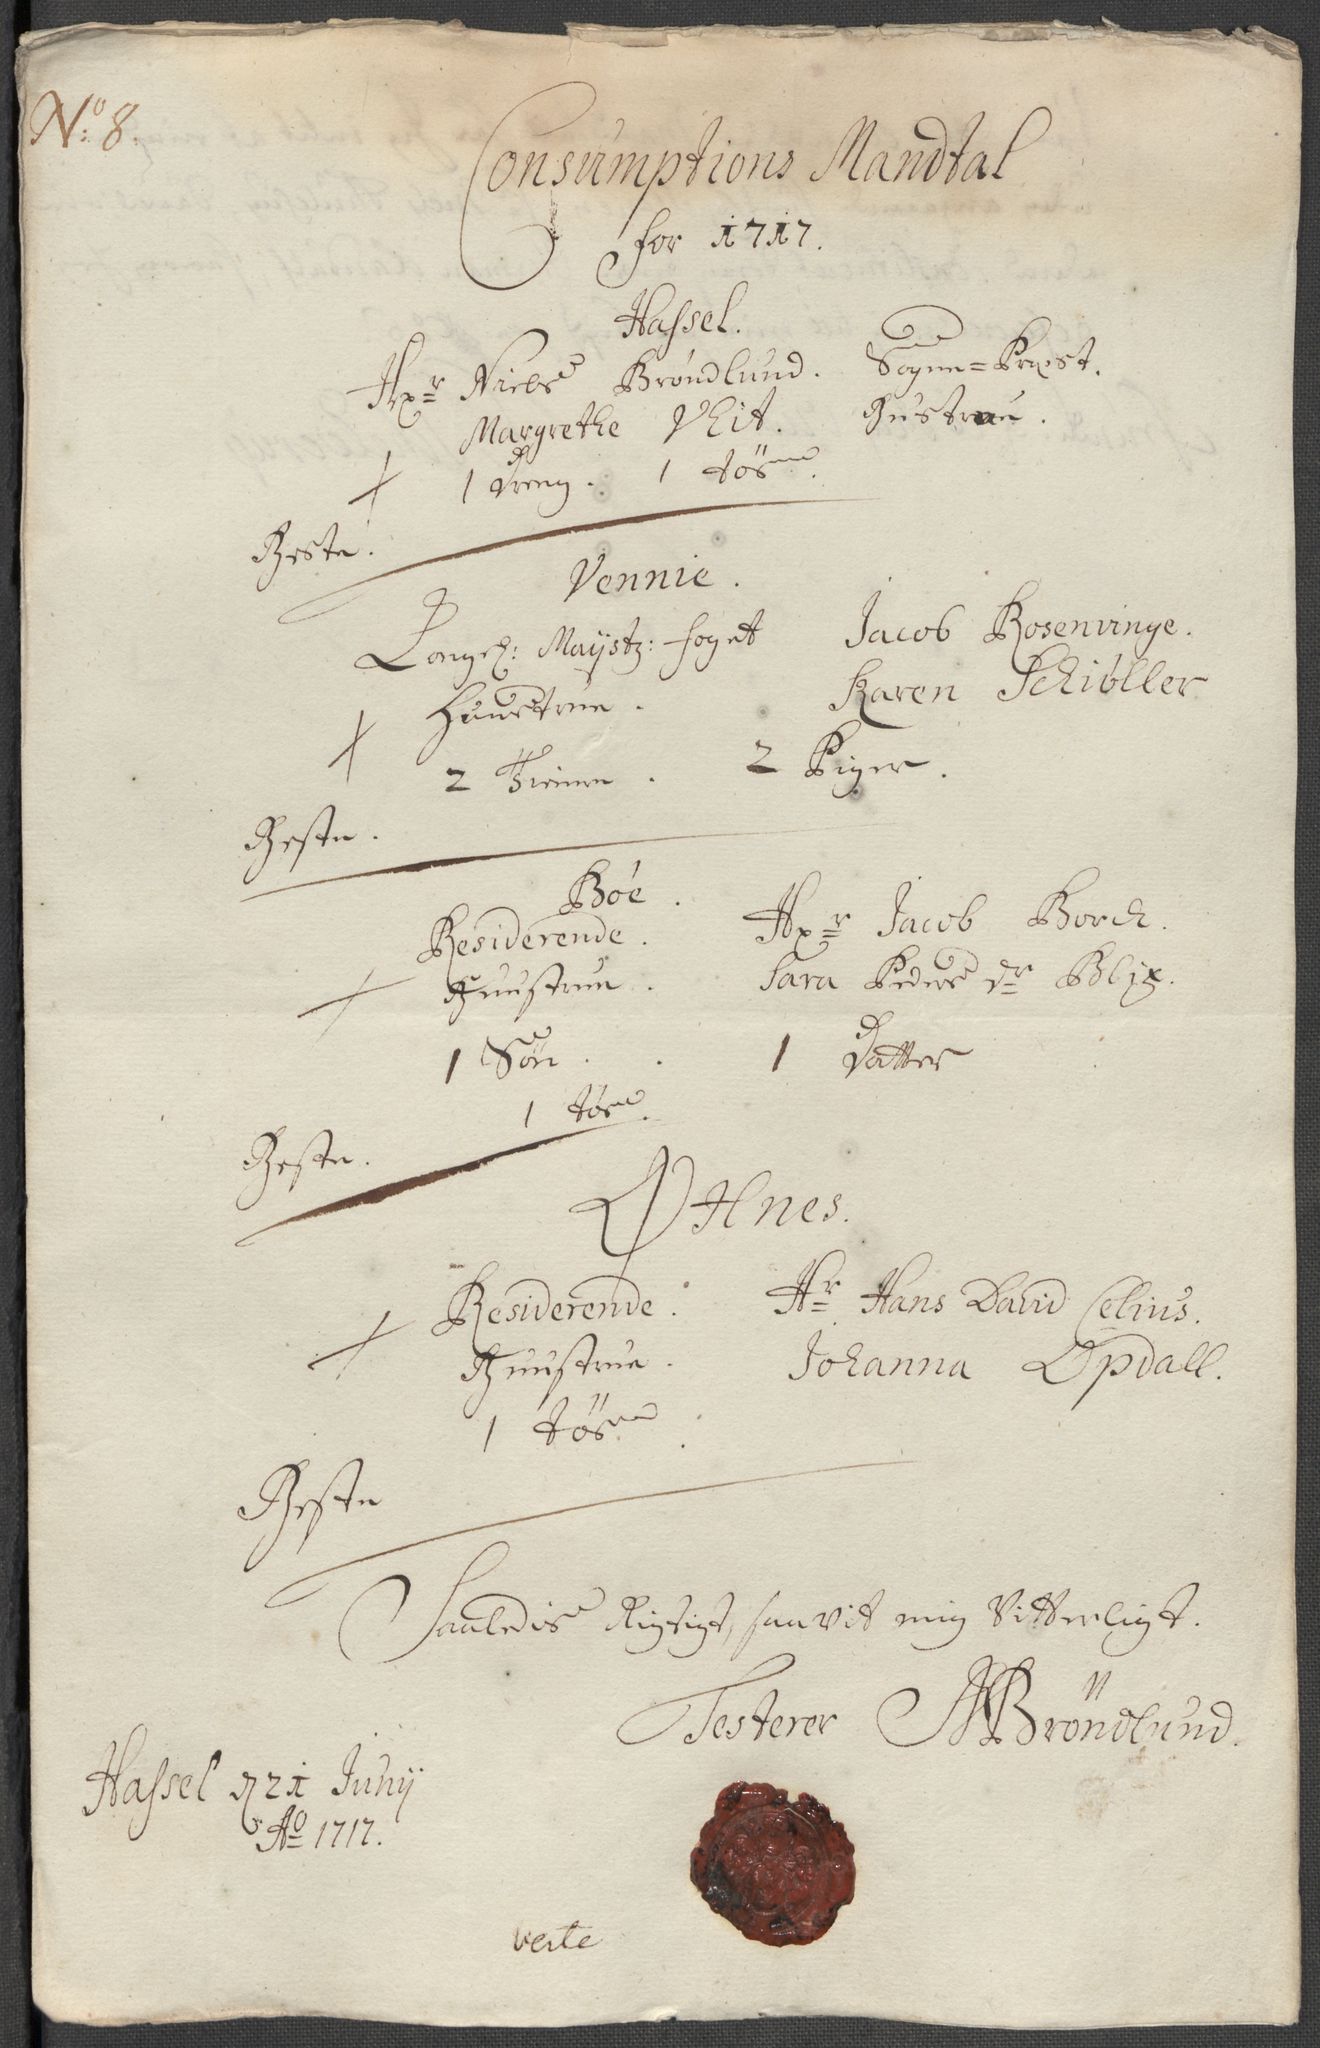 No: 8.
Consumptions Mandtal
for 1717.
Hassel.
Hr Niels Bröndlund. Sogne=Præst.
Margrethe Vhit. Hustrue.
1 dreng. 1 tös
Vennie.
Kongel: Mayst: foget Jacob Rosenvinge.
Huustrue. Karen Schiöller
2 Tienere. 2 Piger.
Böe.
Residerende. Hr Jacob Borch.
Huustrue. Sara Peders dr Blix.
1 Sön. 1 Datter
1 tös.
Ölnes.
Residerende. Hr Hans David Celius.
Huustrue. Johanna Opdall.
1 tös
Saaledis Rigtigt, saavit mig Vitterligt.
Testerer NBröndlund.
Hassel d 21 Junij
Ao 1717.
verte